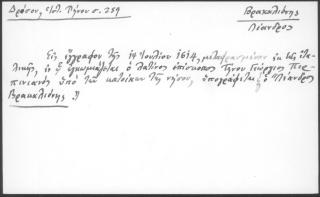 Δρόσου, Ἱστ. Τήνου σ. 259
Βρακαλιώνης
Λέανδρος
Εἰς ἔγγραφον τῆς 14 Ἰουλίου 1614, μεταφρασμένον ἐκ τῆς ἰτα-
λικῆς, ἐν ᾧ ἐγκωμιάζεται ὁ λατῖνος ἐπίσκοπος Τήνου Γεώργιος Περ-
πινιανός ὑπό τῶν κατοίκων τῆς νήσου, ὑπογράφεται ὁ "Λέανδρος
Βρακαλιώνης"